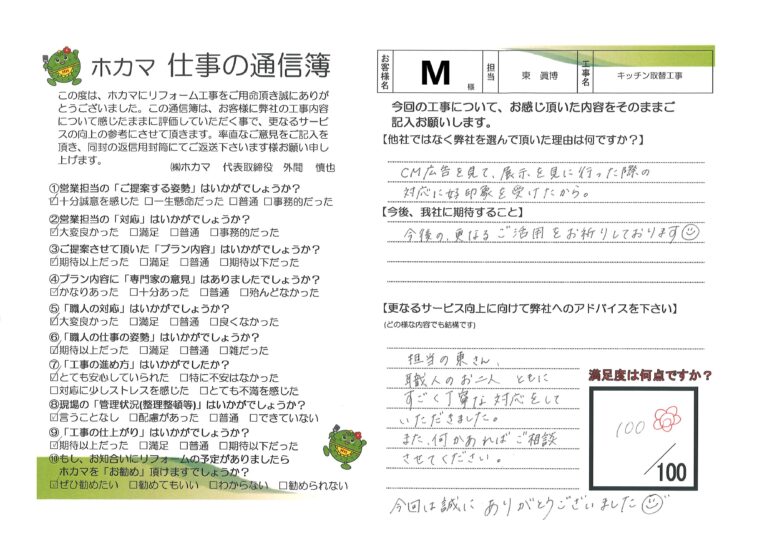 ホカマ 仕事の通信簿
この度は、ホカマにリフォーム工事をご用命頂き誠にありが
とうございました。この通信簿は、お客様に弊社の工事内容
について感じたままに評価していただく事で、更なるサービ
スの向上の参考にさせて頂きます。率直なご意見をご記入を
頂き、同封の返信用封筒にてご返送下さいます様お願い申し
上げます。
㈱ホカマ 代表取締役 外間 慎也
①営業担当の「ご提案する姿勢」はいかがでしょうか?
☑十分誠意を感じた □一生懸命だった □普通 □事務的だった
②営業担当の「対応」はいかがでしょうか?
☑大変良かった □満足 □普通 □事務的だった
③ご提案させて頂いた「プラン内容」はいかがでしょうか?
☑期待以上だった □満足 □普通 □期待以下だった
④プラン内容に「専門家の意見」はありましたでしょうか?
☑かなりあった □十分あった □普通 □殆んどなかった
⑤「職人の対応」はいかがでしょうか?
☑大変良かった □満足 □普通 □良くなかった
⑥「職人の仕事の姿勢」はいかがでしょうか?
☑期待以上だった □満足 □普通 □雑だった
⑦「工事の進め方」はいかがでしたか?
☑とても安心していられた □特に不安はなかった
□対応に少しストレスを感じた □とても不満を感じた
⑧現場の「管理状況(整理整頓等)」はいかがでしょうか?
☑言うことなし □配慮があった □普通 □できていない
⑨「工事の仕上がり」はいかがでしょうか?
☑期待以上だった □満足 □普通 □期待以下だった
⑩もし、お知合いにリフォームの予定がありましたら
ホカマを「お勧め」頂けますでしょうか?
☑ぜひ勧めたい □勧めてもいい □わからない □勧められない
お客様名 M 様 担当 東 眞博 工事名 キッチン取替工事
今回の工事について、お感じ頂いた内容をそのままご
記入お願いします。
【他社ではなく弊社を選んで頂いた理由は何ですか?】
CM広告を見て、展示を見に行った際の
対応に好印象を受けたから。
【今後、我社に期待すること】
今後の、更なるご活用をお祈りしております
【更なるサービス向上に向けて弊社へのアドバイスを下さい】
(どの様な内容でも結構です)
担当の東さん、
職人のお二人 ともに
すごく丁寧な対応をして
いただきました。
また、何かあればご相談
させてください。
今回は誠に ありがとうございました
満足度は何点ですか?
100
/100